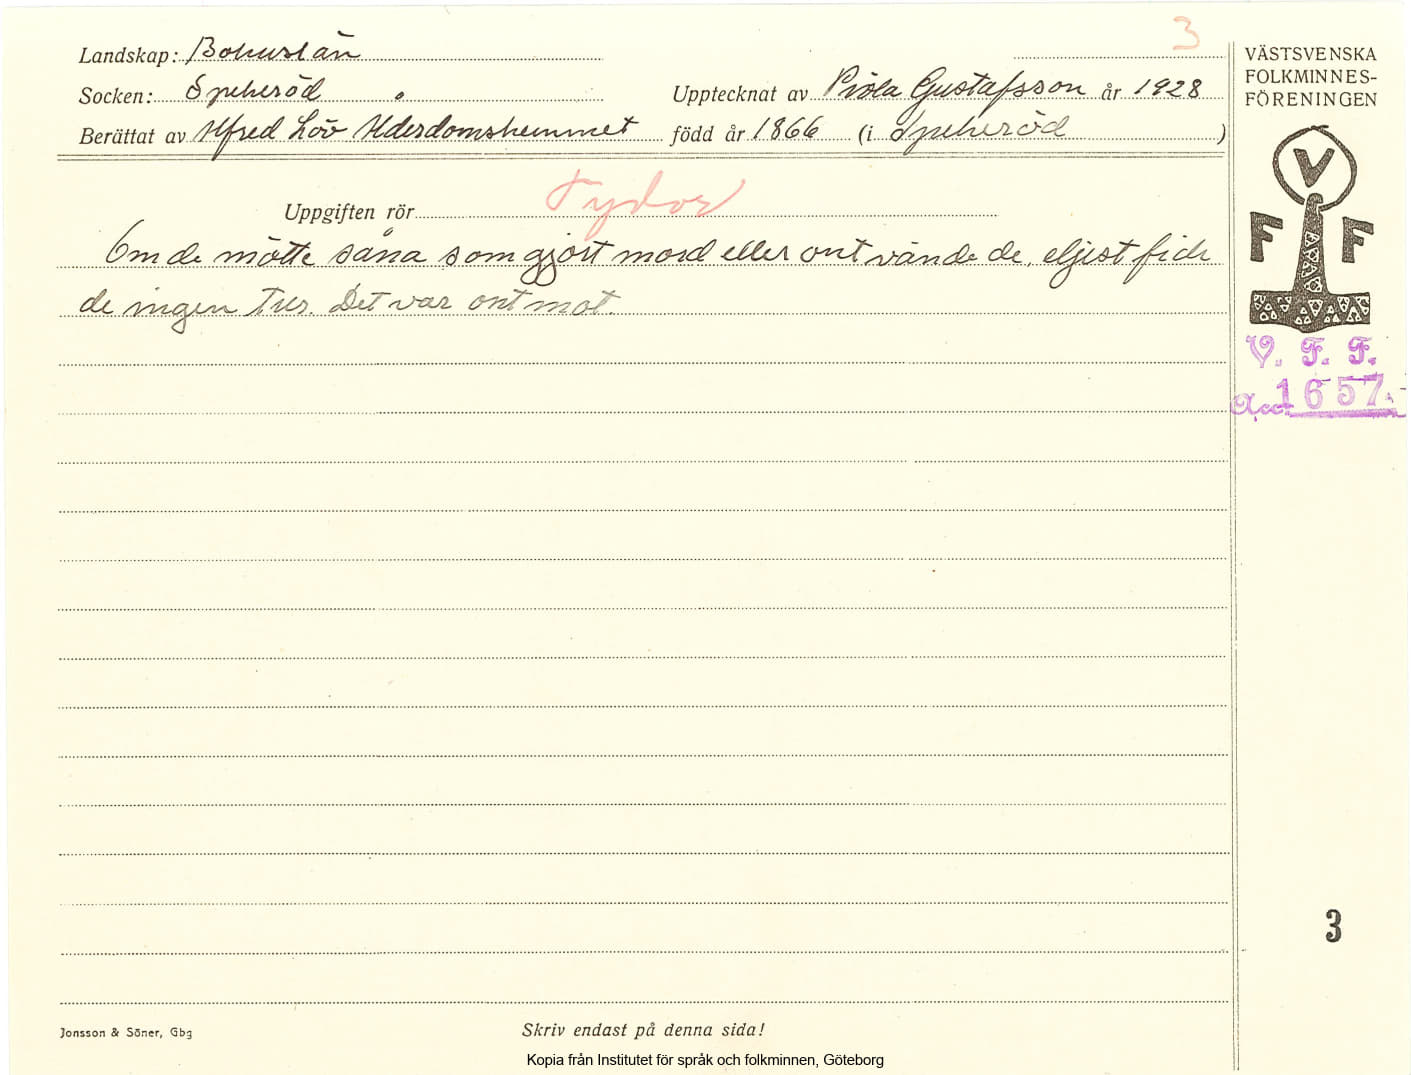 3
Landskap: Bohuslän
VÄSTSVENSKA
FOLKMINNES-
FÖRENINGEN
Socken: Spekeröd
Upptecknat av Viola Gustafsson år 1928
Berättat av Alfred Löv Ålderdomshemmet född år 1866 (i Spekeröd)
V
F F
Uppgiften rör Tydor
Om de mötte såna som gjort mord eller ont vände de, eljest fick
de ingen tur. Det var ont mot.
V. F. F.
Acc. 1657.
3
Jonsson & Söner, Gbg
Skriv endast på denna sida!
Kopia från Institutet för språk och folkminnen, Göteborg